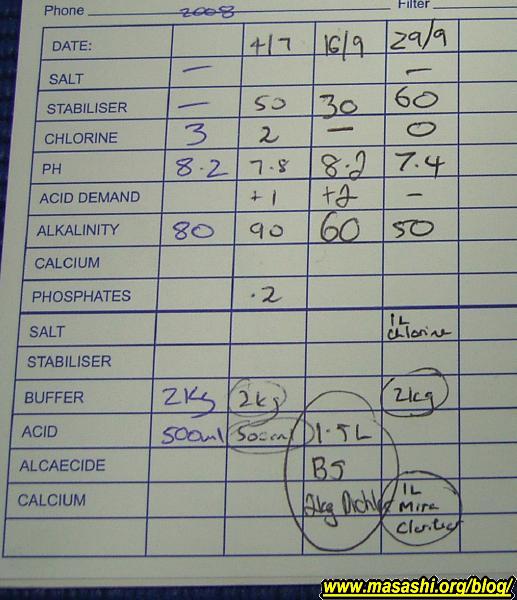 Phone 2008 Filter
DATE: 4/7 16/9 29/9
SALT — —
STABILISER — 50 30 60
CHLORINE 3 2 — 0
PH 8.2 7.8 8.2 7.4
ACID DEMAND +1 +2 —
ALKALINITY 80 90 60 50
CALCIUM
PHOSPHATES .2
SALT 1L chlorine
STABILISER
BUFFER 2Kg 2kg 2kg
ACID 500ml 500ml 1.5L
ALCAECIDE B5
CALCIUM 2kg 1L
Mira
www.masashi.org/blog/